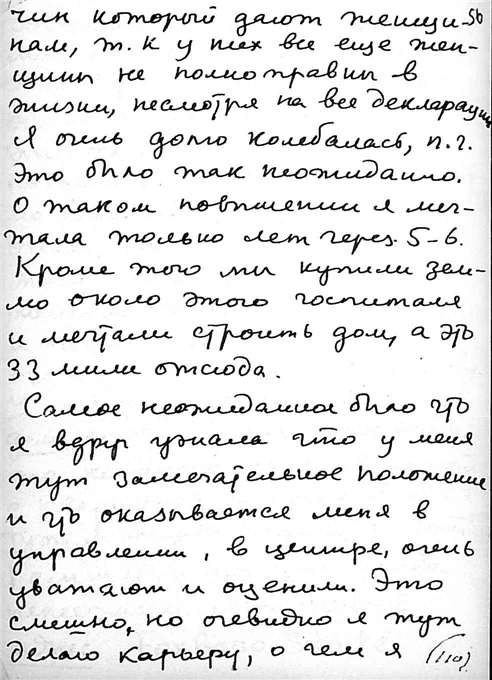 чин который дают женщи- 56
нам, т.к у них все еще жен-
щины не полноправны в
жизни, несмотря на все декларации
Я очень долго колебалась, п.ч.
это было так неожиданно.
О таком повышении я меч-
тала только лет через 5-6.
Кроме того мы купили зем-
лю около этого госпиталя
и мечтали строить дом, а это
33 мили отсюда.
Самое неожиданное было что
я вдруг узнала что у меня
тут замечательное положение
и что оказывается меня в
управлении, в центре, очень
уважают и оценили. Это
смешно, но очевидно я тут
делаю карьеру, о чем я (110)